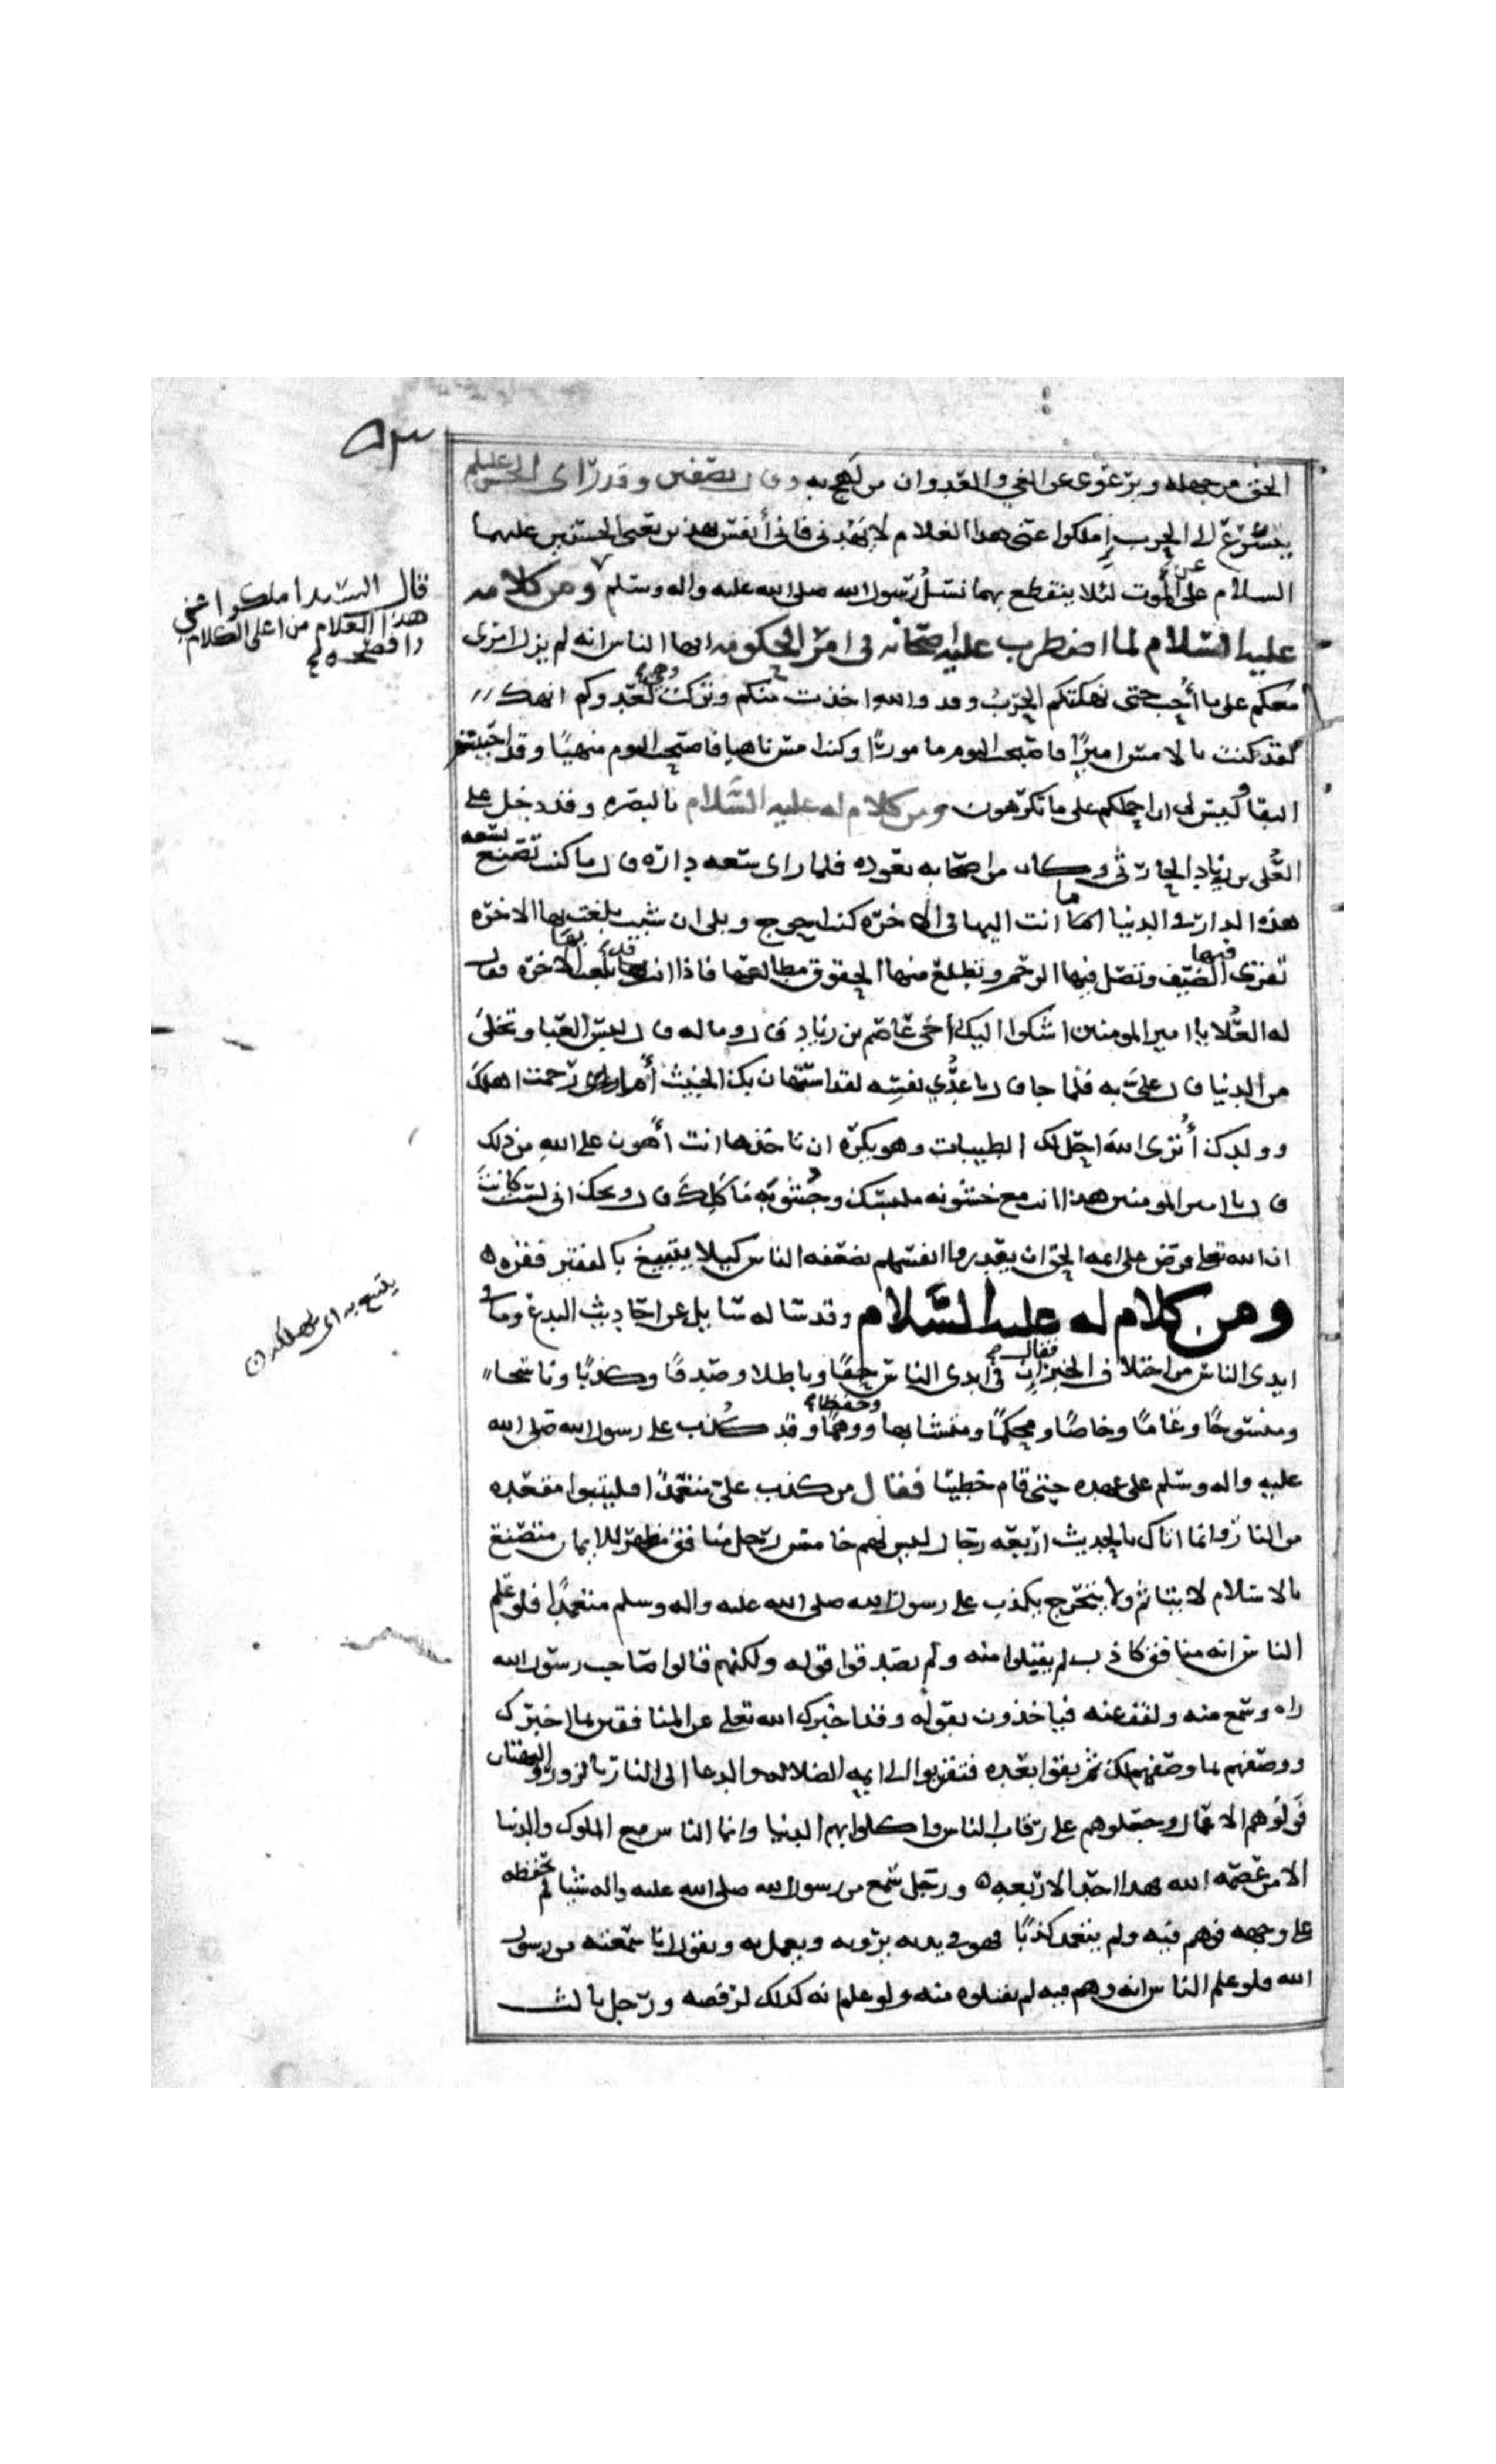 ٥٣
الحق من جهله ويرعوى عن الغي والعدوان من لهج به وقال بصفين وقد راى الحسن عليلم
يتسرع الى الحرب املكوا عني هذا الغلام لا يهدني فانى أنفس بهذين يعنى الحسنين عليهما
السلام على الموت لئلا ينقطع بهما نسل رسول الله صلى الله عليه واله وسلم ومن كلامه
عليه السلام لما اضطرب عليه اصحابه فى امر الحكومه ايها الناس انه لم يزل امرى
معكم على ما أحب حتى نهكتكم الحرب وقد والله اخذت منكم وتركت وهي لعدوكم انهك
لقد كنت بالامس اميرًا فاصبحت اليوم مامورًا وكنت امس ناهيا فاصبحت اليوم منهيًا وقد احببتم
البقا وليس لى ان احملكم على ما تكرهون ومن كلام له عليه السلام بالبصره وقد دخل على
العلى بن زياد الحارثى وكان من اصحابه يعوده فلما راى سعه داره قال ما كنت تصنع بسعه
هذه الدار فى الدنيا اما انت اليها فى الاخره كنت احوج وبلى ان شيت بلغت بها الاخره
تقرى فيها الضيف وتصل فيها الرحم وتطلع منها الحقوق مطالعها فاذا انت قد بلغت بها الاخره فقال
له العلا يا امير المومنين اشكوا اليك أخى عاصم بن زياد قال وما له قال لبس العبا وتخلى
من الدنيا قال على به فلما جا قال يا عدي نفسه لقد استهام بك الخبيث أما رحمت اهلك
وولدك أترى الله احل لك الطيبات وهو يكره ان تاخذها انت أهون على الله من ذلك
قال يا امير المومنين هذا انت مع خشونه ملبسك وجشوبه مأكلك قال ويحك انى لست كانت
ان الله تعلى فرض على ايمه الحق ان يقدروا انفسهم بضعفه الناس كيلا يتبيغ بالفقير فقره ه
ومن كلام له عليه السلام وقد ساله سايل عن احاديث البدع وما فى
ايدى الناس من اختلاف الخبر فقال ان فى أيدى الناس حقًا وباطلا وصدقًا وكذبًا وناسخا
ومنسوخًا وعامًا وخاصًا ومحكمًا ومتشابها وحفظا ووهمًا وقد كذب على رسول الله صلى الله
عليه واله وسلم على عهده حتى قام خطيبًا فقال من كذب على متعمدًا فليتبوا مقعده
من النار وانما اتاك بالحديث اربعه رجال ليس لهم خامس رجل منافق مظهر للايمان متصنع
بالاسلام لا يتاثم ولا يتحرج يكذب على رسول الله صلى الله عليه واله وسلم متعمدًا فلو علم
الناس انه منافق كاذب لم يقبلوا منه ولم يصدقوا قوله ولكنهم قالوا صاحب رسول الله
راه وسمع منه ولقف عنه فياخذون بقوله وقد اخبرك الله تعلى عن المنافقين بما اخبرك
ووصفهم بما وصفهم لك ثم بقوا بعده فتقربوا الى ايمه الضلاله والدعا الى النار بالزور والبهتان
فولوهم الاعمال وجعلوهم على رقاب الناس واكلوا بهم الدنيا وانما الناس مع الملوك والدنيا
الا من عصمه الله هذا احد الاربعه ه ورجل سمع من رسول الله صلى الله عليه واله شيئا لم يحفظه
على وجهه فوهم فيه ولم يتعمد كذبًا فهو فى يديه يرويه ويعمل به ويقول انا سمعته من رسول
الله فلو علم الناس انه وهم فيه لم يقبلوه منه ولو علم انه كذلك لرفضه ورجل ثالث
قال السيد املكوا عني
هذا الغلام من اعلى الكلام
وافصحه
يتبيغ به اى يهلكه